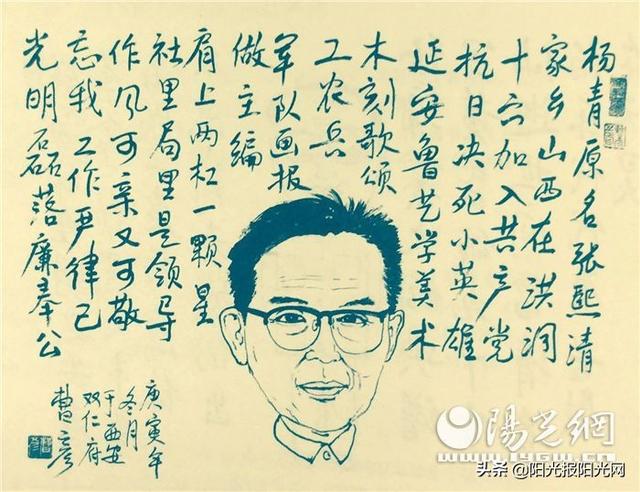 杨青原名张熙清
家乡山西在洪洞
十六加入共产党
抗日决死小英雄
延安鲁艺学美术
木刻歌颂
工农兵
军队画报
做主编
肩上两杠一颗星
社里局里是领导
作风可亲又可敬
忘我工作严律己
光明磊落廉奉公
庚寅年
冬月
于西安
双仁府
曹彦
陽光網
www.iygw.cn
头条@阳光报阳光网